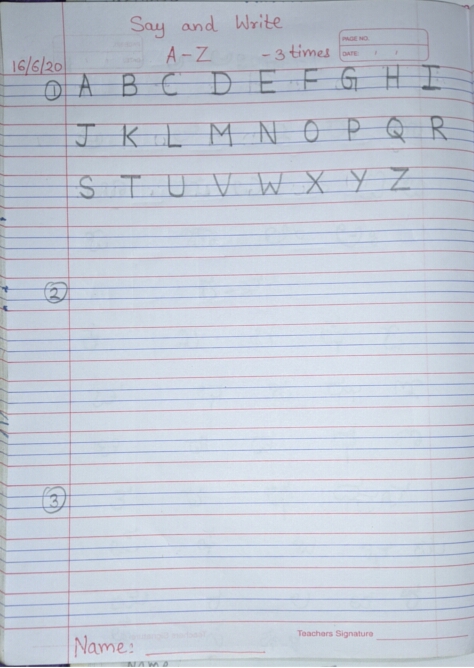 Say and Write
A-Z - 3 times
PAGE NO.
DATE: / /
16/6/20
① A B C D E F G H I
J K L M N O P Q R
S T U V W X Y Z
②
③
Teachers Signature
Name: